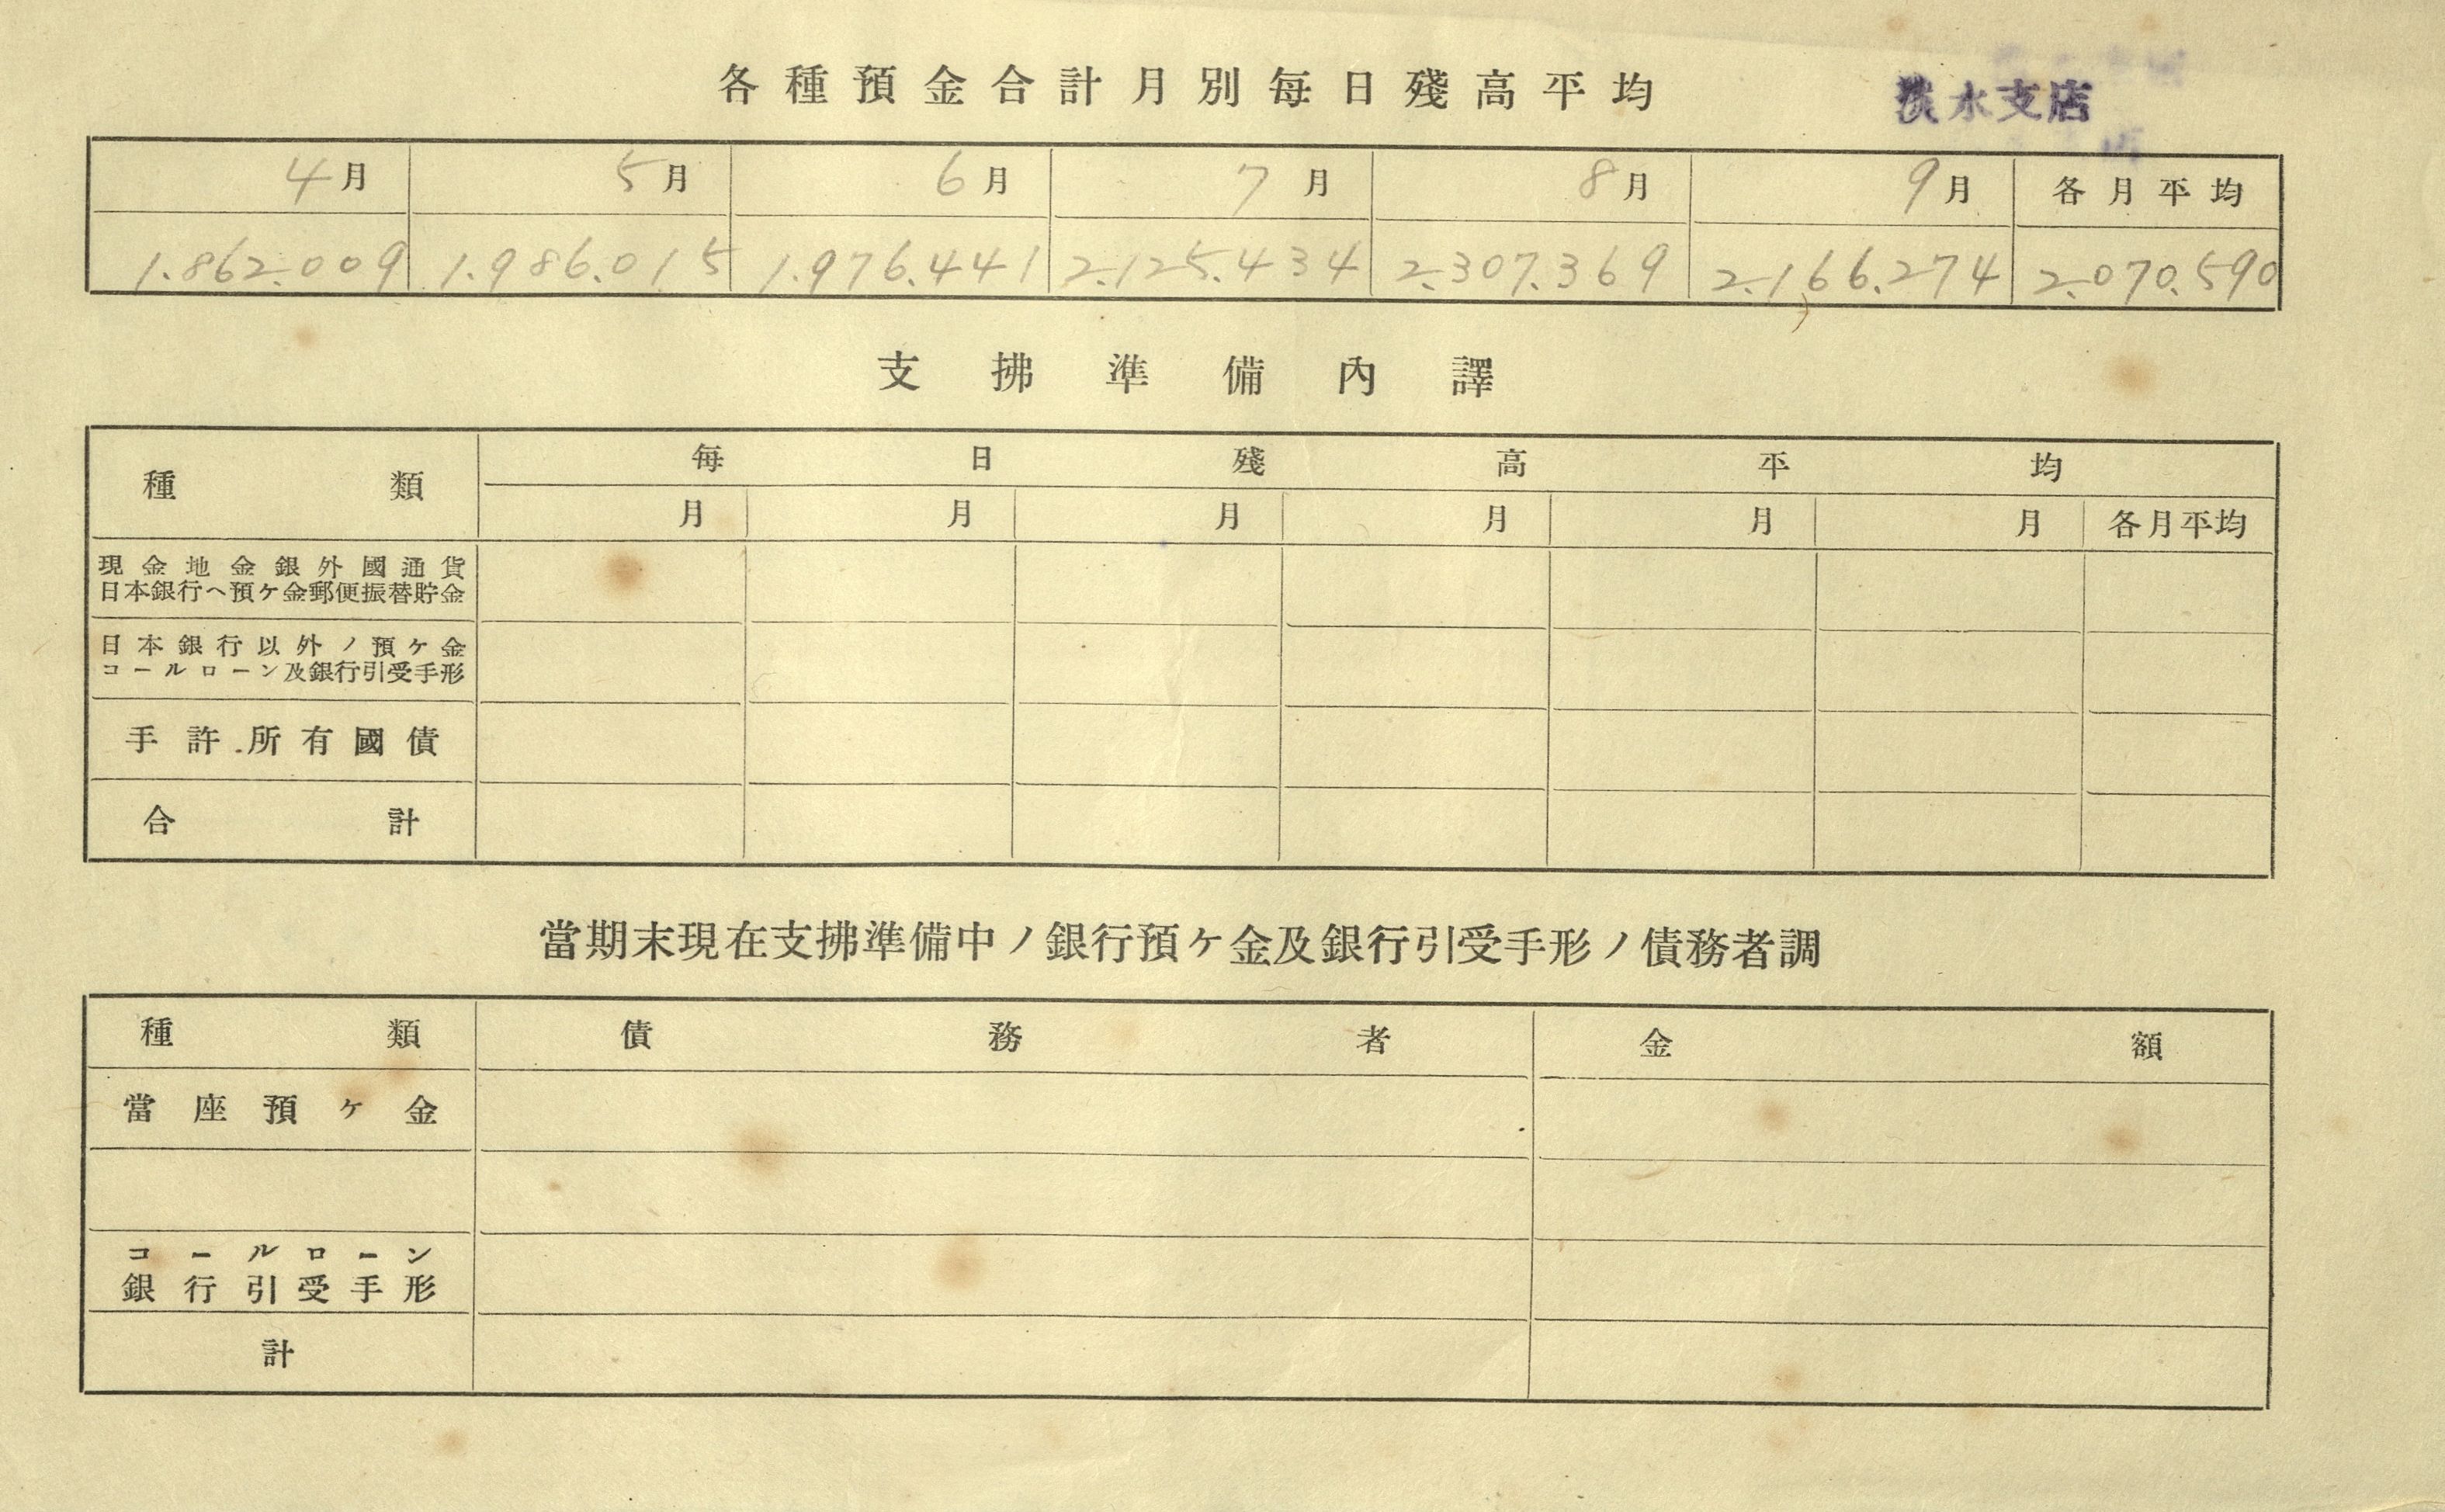 各種預金合計月別每日殘高平均
淡水支店
4月 5月 6月 7月 8月 9月 各月平均
1.862.009 1.986.015 1.976.441 2.125.434 2.307.369 2.166.274 2.070.590
支拂準備內譯
種類 每日殘高平均
月 月 月 月 月 月 各月平均
現金地金銀外國通貨
日本銀行ヘ預ケ金郵便振替貯金
日本銀行以外ノ預ケ金
コールローン及銀行引受手形
手許所有國債
合計
當期末現在支拂準備中ノ銀行預ケ金及銀行引受手形ノ債務者調
種類 債務者 金額
當座預ケ金
コールローン
銀行引受手形
計